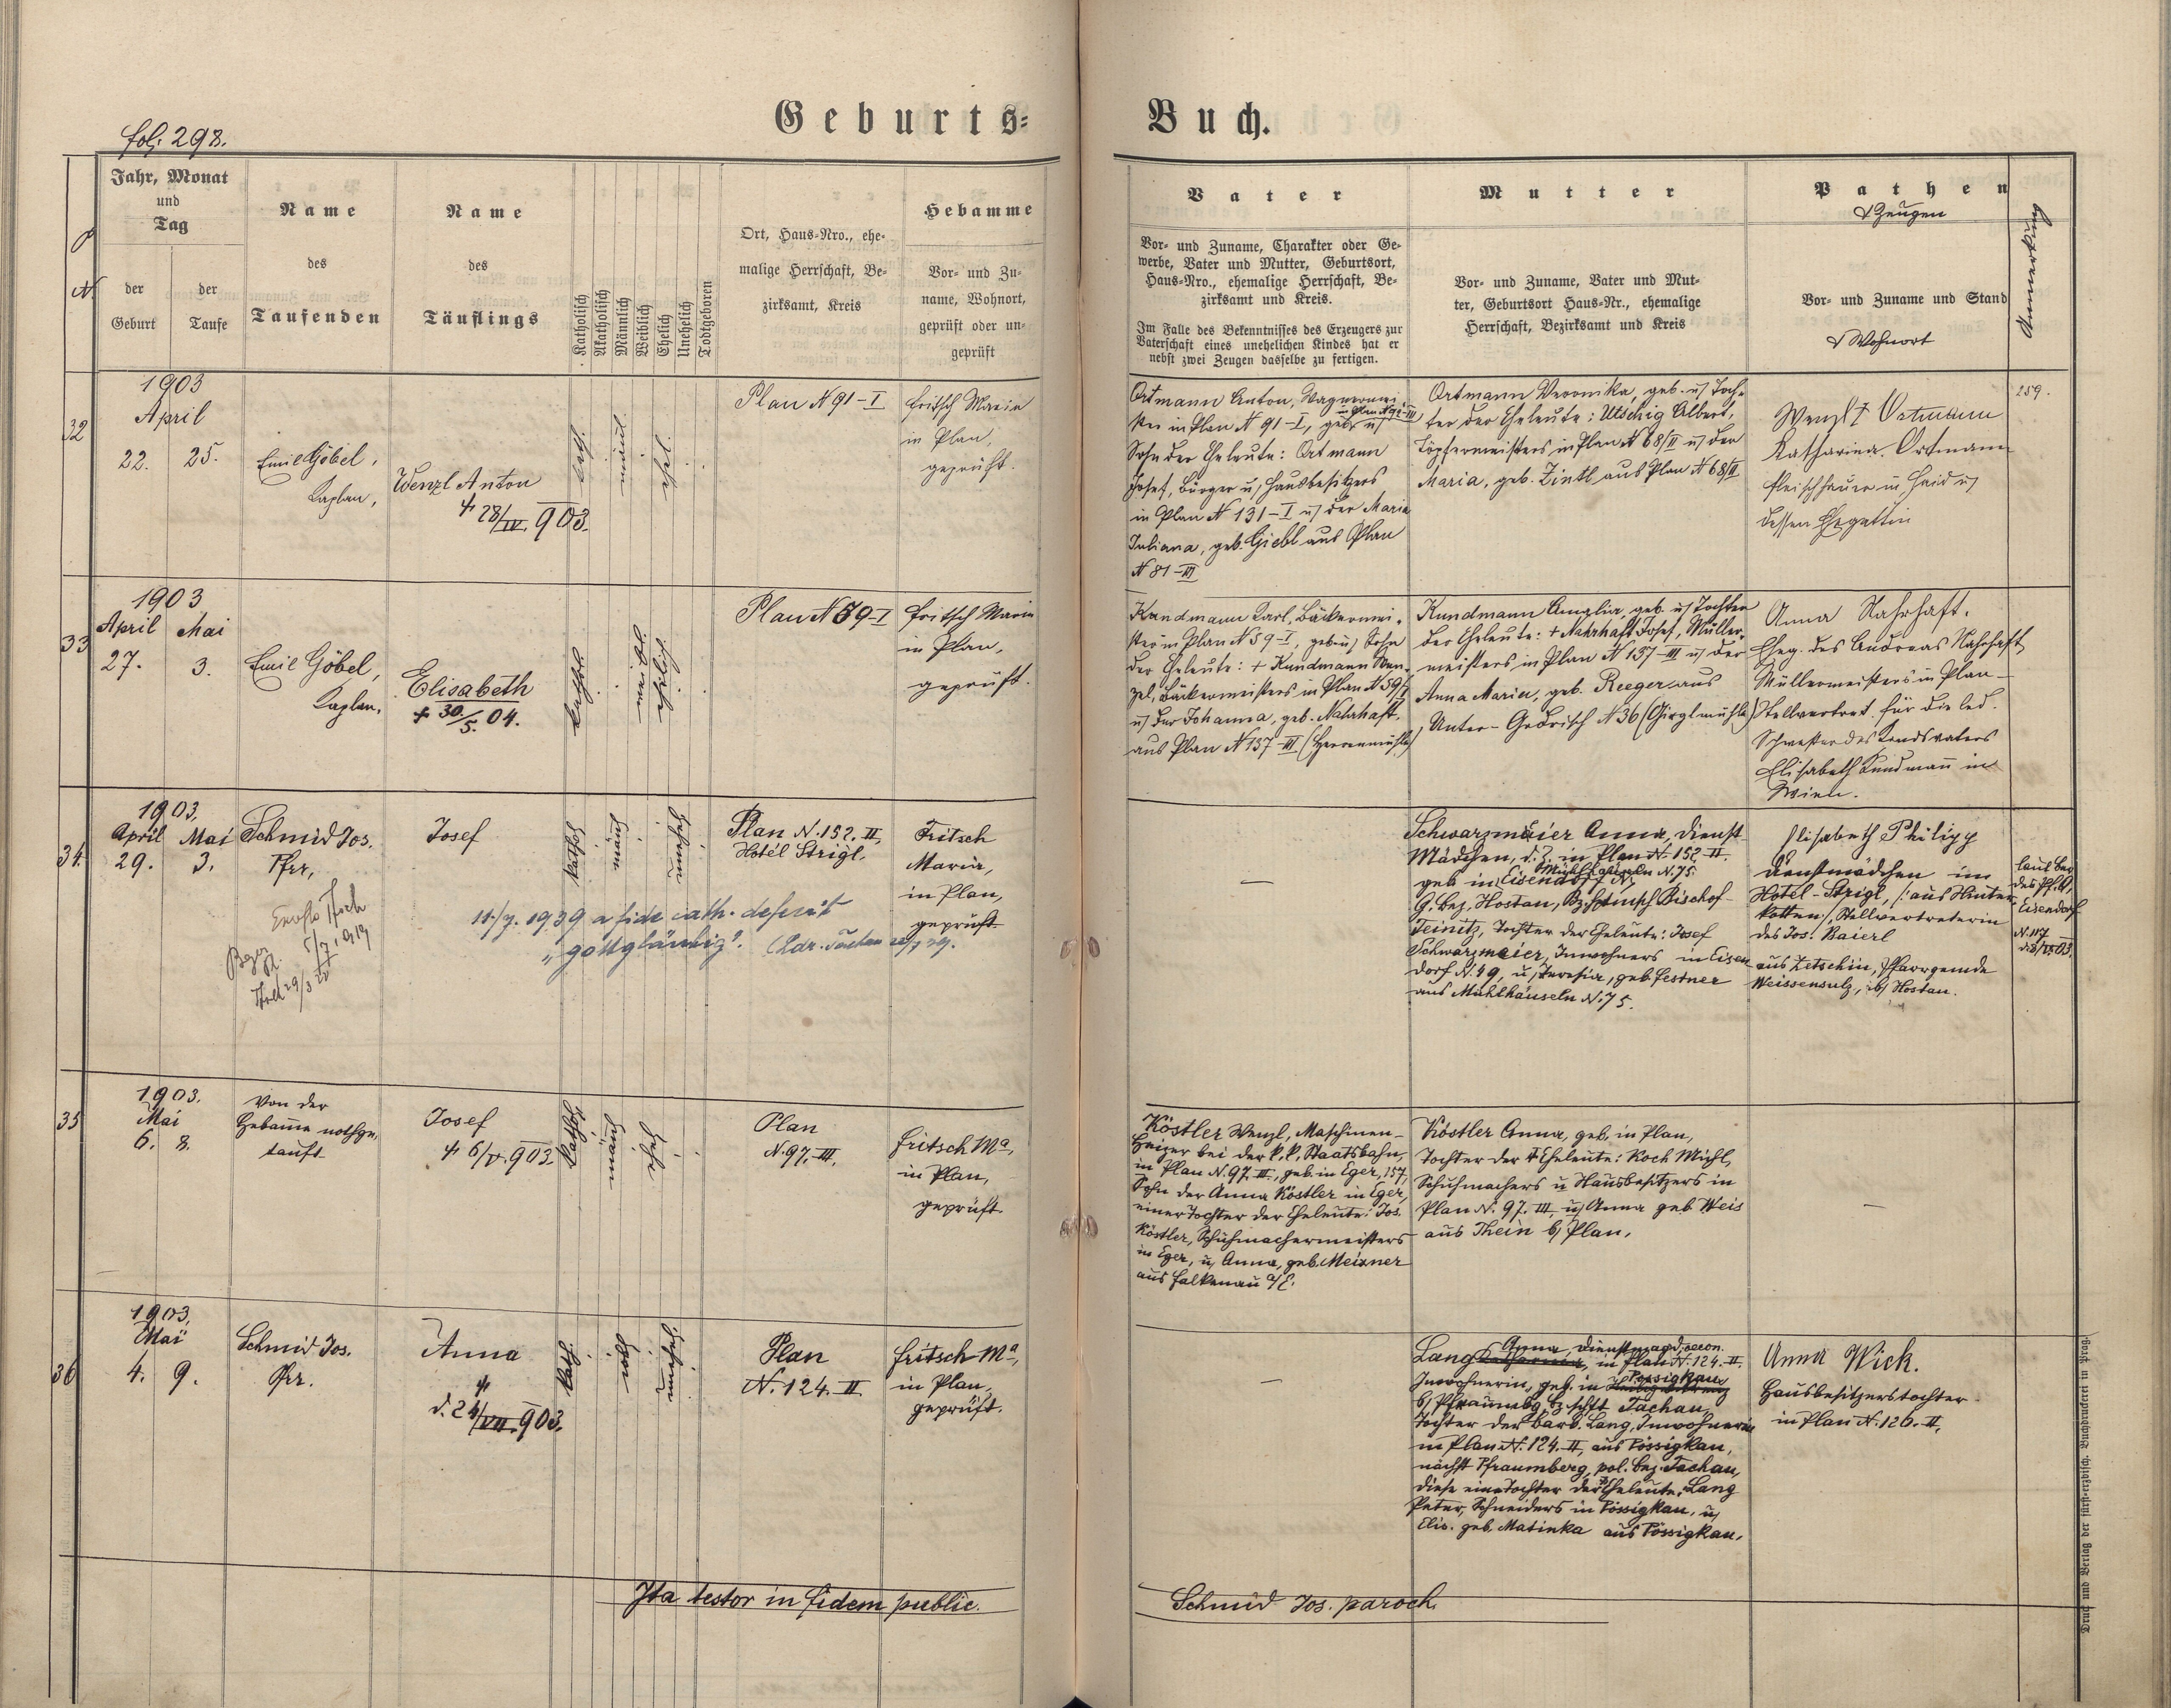 Geburts=
Buch.
fol. 298.
Jahr, Monat
und
Tag
der
Geburt
der
Taufe
Name
des
Taufenden
Name
des
Täuflings
Katholisch
Akatholisch
Männlich
Weiblich
Ehelich
Unehelich
Todtgeboren
Ort, Haus-Nro., ehe-
malige Herrschaft, Be-
zirksamt, Kreis
Hebamme
Vor- und Zu-
name, Wohnort,
geprüft oder un-
geprüft
Vater
Vor- und Zuname, Charakter oder Ge-
werbe, Vater und Mutter, Geburtsort,
Haus-Nro., ehemalige Herrschaft, Be-
zirksamt und Kreis.
Im Falle des Bekenntnisses des Erzeugers zur
Vaterschaft eines unehelichen Kindes hat er
nebst zwei Zeugen dasselbe zu fertigen.
Mutter
Vor- und Zuname, Vater und Mut-
ter, Geburtsort Haus-Nr., ehemalige
Herrschaft, Bezirksamt und Kreis
Pathen
& Zeugen
Vor- und Zuname und Stand
& Wohnort
Anmerkung
32
1903
April
22. 25.
Emil Göbel,
Kaplan,
Wenzl Anton
† 28/IV. 903.
Plan N 91-I
Fritsch Maria
in Plan,
geprüft.
Ortmann Anton, Wagnermei-
ster in Plan N 91-I, geb. in Plan N 92-III u/
Sohn der Eheleute: Ortmann
Josef, Bürger u/ Hausbesitzers
in Plan N 131-I u/ der Maria
Juliana, geb. Giebl aus Plan
N 81-III
Ortmann Veronika, geb. u/ Toch-
ter der Eheleute: Utschig Albert,
Töpfermeisters in Plan N 68/II u/ der
Maria, geb. Zintl aus Plan N 68/II
Wenzl Ortmann
Katharina Ortmann
Fleischhauer in Haid u/
dessen Ehegattin
259.
33
1903
April Mai
27. 3.
Emil Göbel,
Kaplan.
Elisabeth
† 30./5. 04.
Plan N 59-I
Fritsch Maria
in Plan,
geprüft.
Kundmann Karl, Bäckermei-
ster in Plan N 59-I, geb. u/ Sohn
der Eheleute: † Kundmann Wen-
zel, Bäckermeisters in Plan N 59/I
u/ der Johanna, geb. Nahrhaft,
aus Plan N 137-III (Herrenmühle)
Kundmann Amalia, geb. u/ Tochter
der Eheleute: † Nahrhaft Josef, Müller-
meisters in Plan N 137-III u/ der
Anna Maria, geb. Reeger aus
Unter-Godrisch N 36 (Girglmühle)
Anna Nahrhaft.
Eheg. des Andreas Nahrhaft
Müllermeisters in Plan -
Stellvertret. für die led.
Schwester des Kindsvaters
Elisabeth Kundmann in
Wien.
34
1903,
April Mai
29. 3.
Schmid Jos.
Pfr,
Josef
11./7. 1939 a fide cath. defecit
"gottgläubig".
Plan N. 152. II,
Hotel Strigl.
Fritsch
Maria,
in Plan,
geprüft.
—
Schwarzmaier Anna, Dienst-
Mädchen, d. Z. in Plan N. 152-II.
geb. in Eisendorf N. Mühlhäuseln N. 75.
G. bez. Hostau, Bzhptmsch Bischof-
Teinitz, Tochter der Eheleute: Josef
Schwarzmaier, Inwohners in Eisen
dorf N. 49, u/ Theresia, geb. Festner
aus Mühlhäuseln N. 75.
Elisabeth Philipp
Dienstmädchen im
Hotel-Strigl, /:aus Hinter-
kotten:/, Stellvertreterin
des Jos. Baierl
aus Zetschin, Pfarrgemde
Weissensulz, b/ Hostau.
laut Ber
des Pf. A.
Eisendorf
N. 117
35
1903.
Mai
6. 8.
Von der
Hebamme nothge-
tauft
Josef
† 6/V. 903.
Plan
N. 97. III.
Fritsch Ma,
in Plan,
geprüft.
Köstler Wenzl, Maschinen-
Heizer bei der k. k. Staatsbahn,
in Plan N. 97. III, geb. in Eger, 157,
Sohn der Anna Köstler in Eger,
einer Tochter der Eheleute: Jos.
Köstler, Schuhmachermeisters
in Eger, u/ Anna, geb. Meixner
aus Falkenau a/E.
Köstler Anna, geb. in Plan,
Tochter der † Eheleute: Koch Michl,
Schuhmachers u Hausbesitzers in
Plan N. 97. III, u/ Anna geb. Weis
aus Thein b/ Plan.
—
36
1903,
Mai
4. 9.
Schmid Jos.
Pfr.
Anna
†
d. 24/VII. 903.
Plan
N. 124. II.
Fritsch Ma,
in Plan,
geprüft.
—
Lang Anna, Dienstmagd, in Plan N. 124. II.
Inwohnerin, geb. in Pössigkau
b/ Pfraumbg, Bz.hptt. Tachau,
Tochter der Barb. Lang, Inwohnerin
in Plan N. 124. II, aus Pössigkau,
nächst Pfraumberg, pol. bez. Tachau,
diese eine Tochter der Eheleute: Lang
Peter, Schneiders in Pössigkau, u/
Elis. geb. Matinka aus Pössigkau.
Anna Wick.
Hausbesitzerstochter
in Plan N. 126. II.
Ita testor in fidem public.
Schmid Jos. paroch.
Druck und Verlag der fürst-erzbisch. Buchdruckerei in Prag.